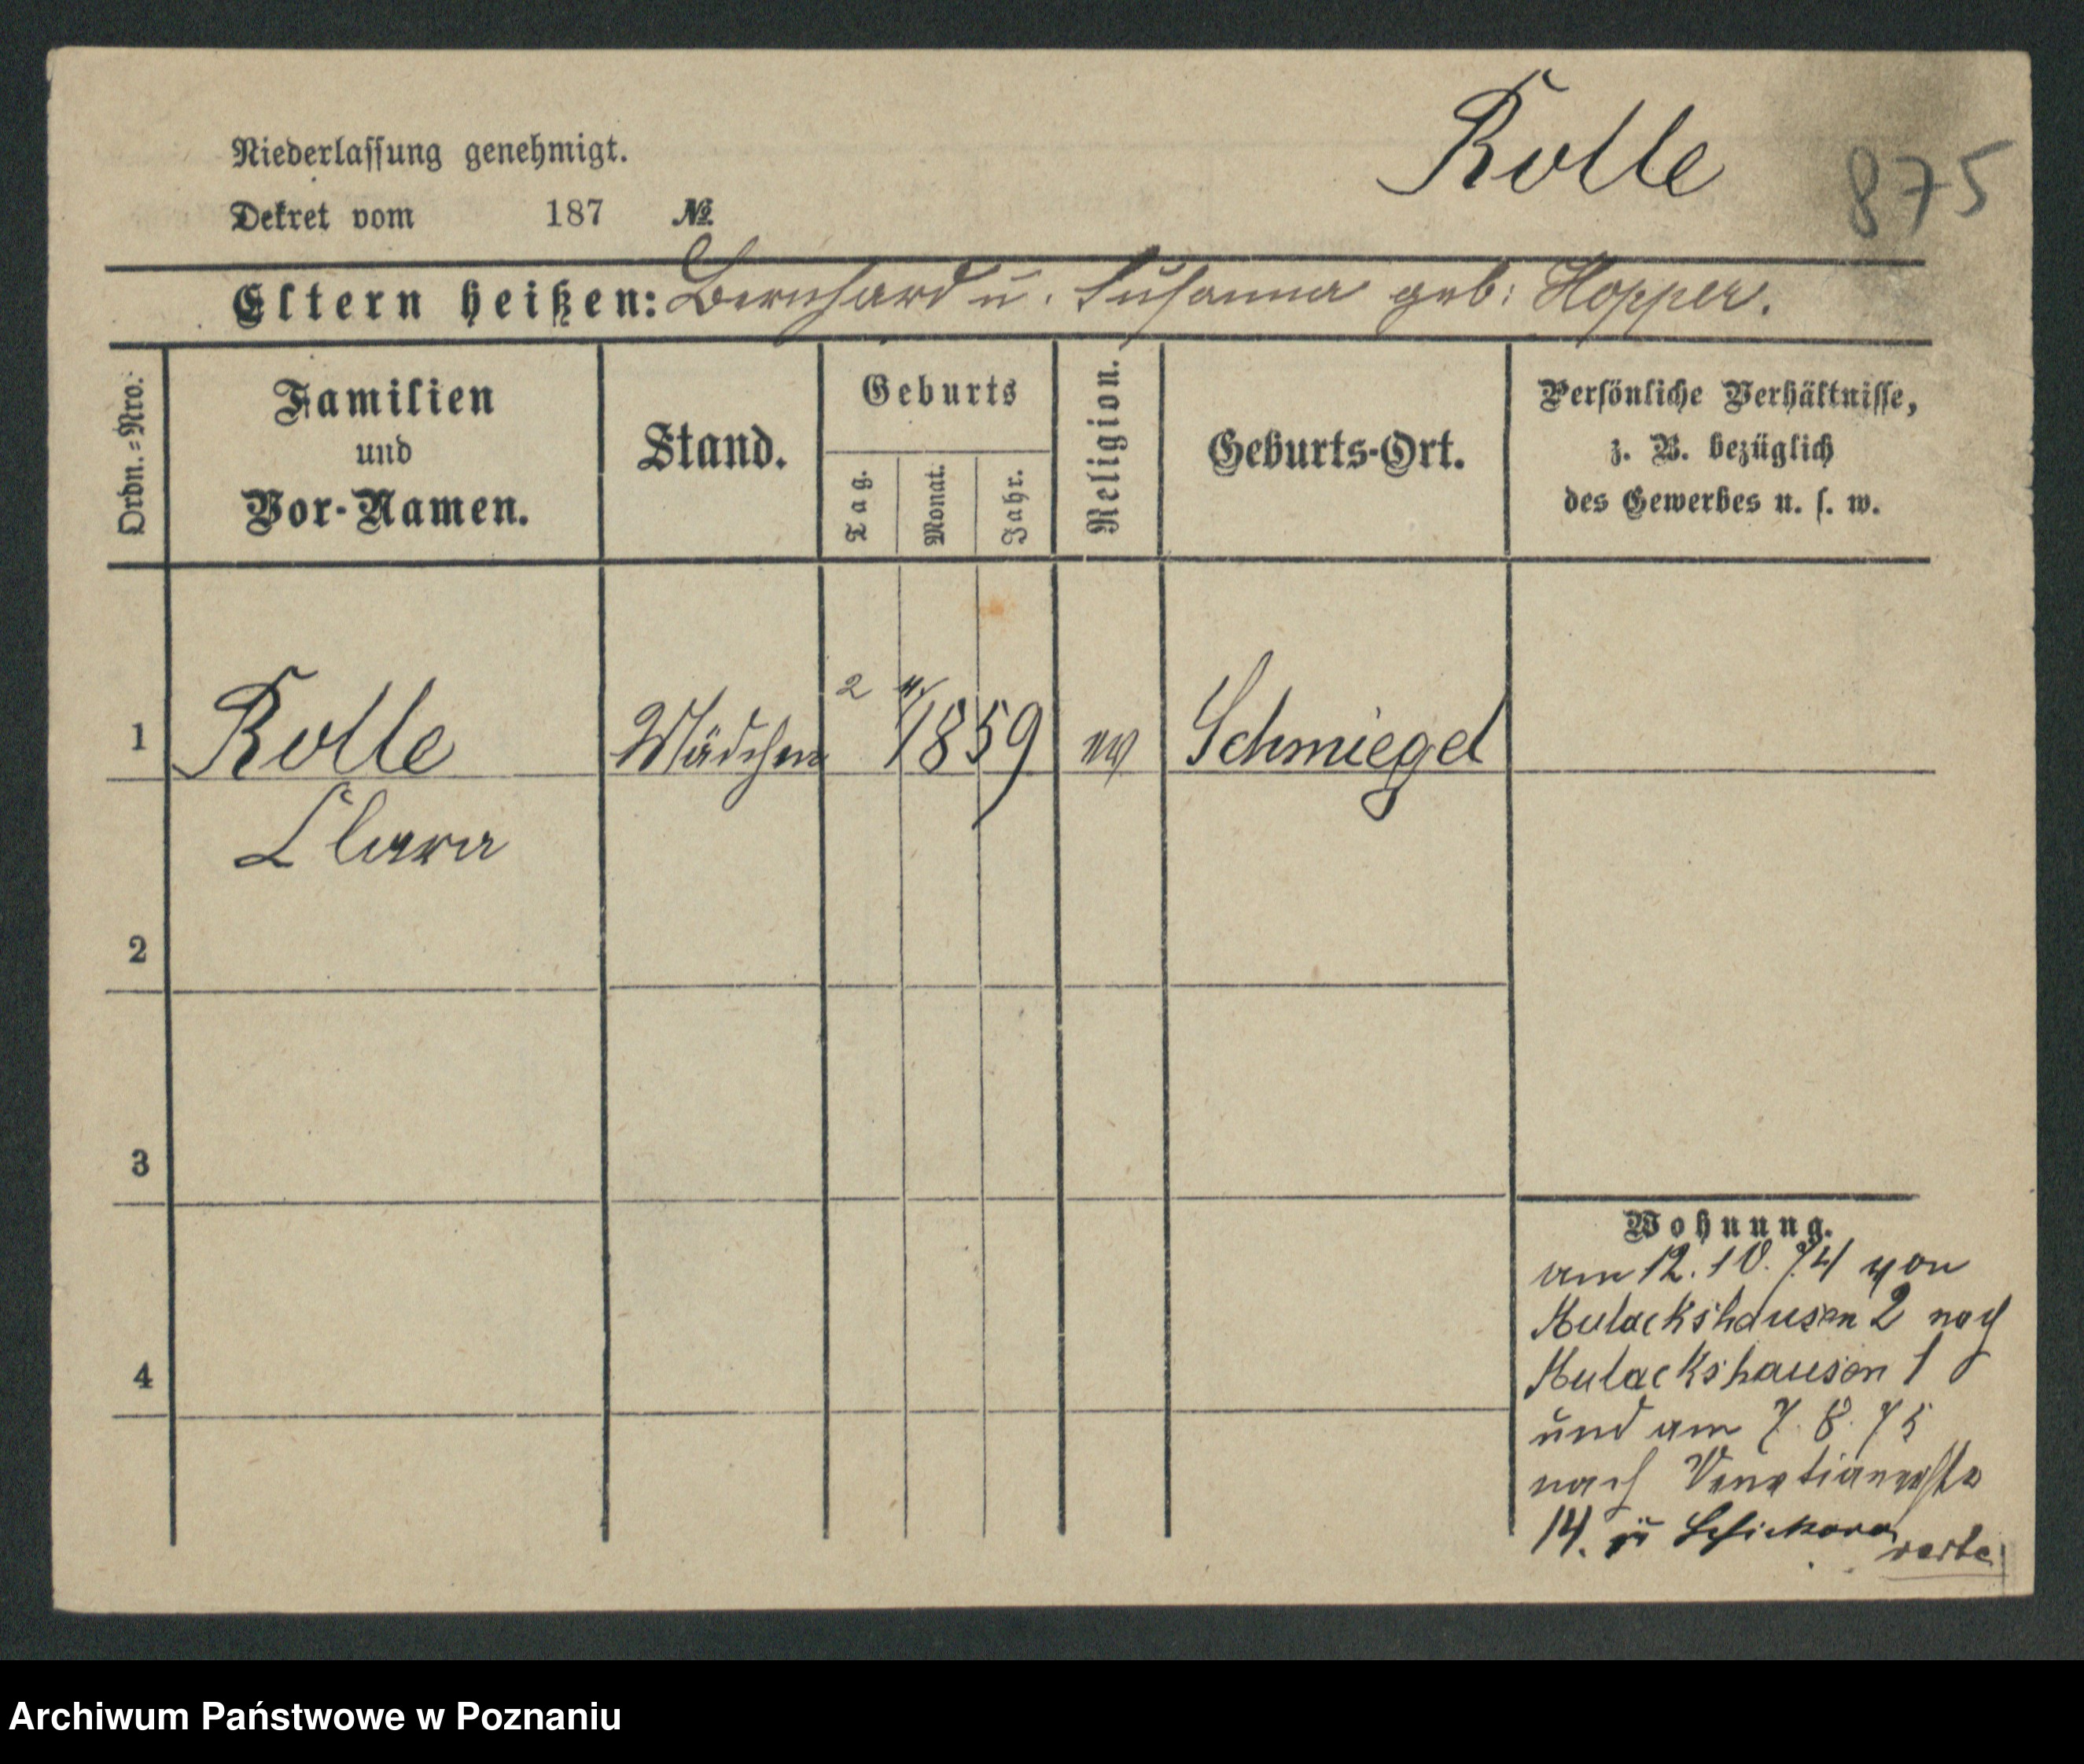 Rolle 875
Niederlassung genehmigt.
Dekret vom 187 №
Eltern heißen: Bernhard u. Susanna geb: Hopper.
Ordn.=Nro.
Familien
und
Vor-Namen.
Stand.
Geburts
Tag.
Monat.
Jahr.
Religion.
Geburts-Ort.
Persönliche Verhältnisse,
z. B. bezüglich
des Gewerbes u. s. w.
1 Rolle Mädchen 2 1859 ev Schmiegel
Clara
2
3
4
Wohnung.
am 12. 10. 74 von
Mulackshausen 2 nach
Mulackshausen 1
und am 7. 8. 75
nach Venetianerstr
14.
verte
Archiwum Państwowe w Poznaniu